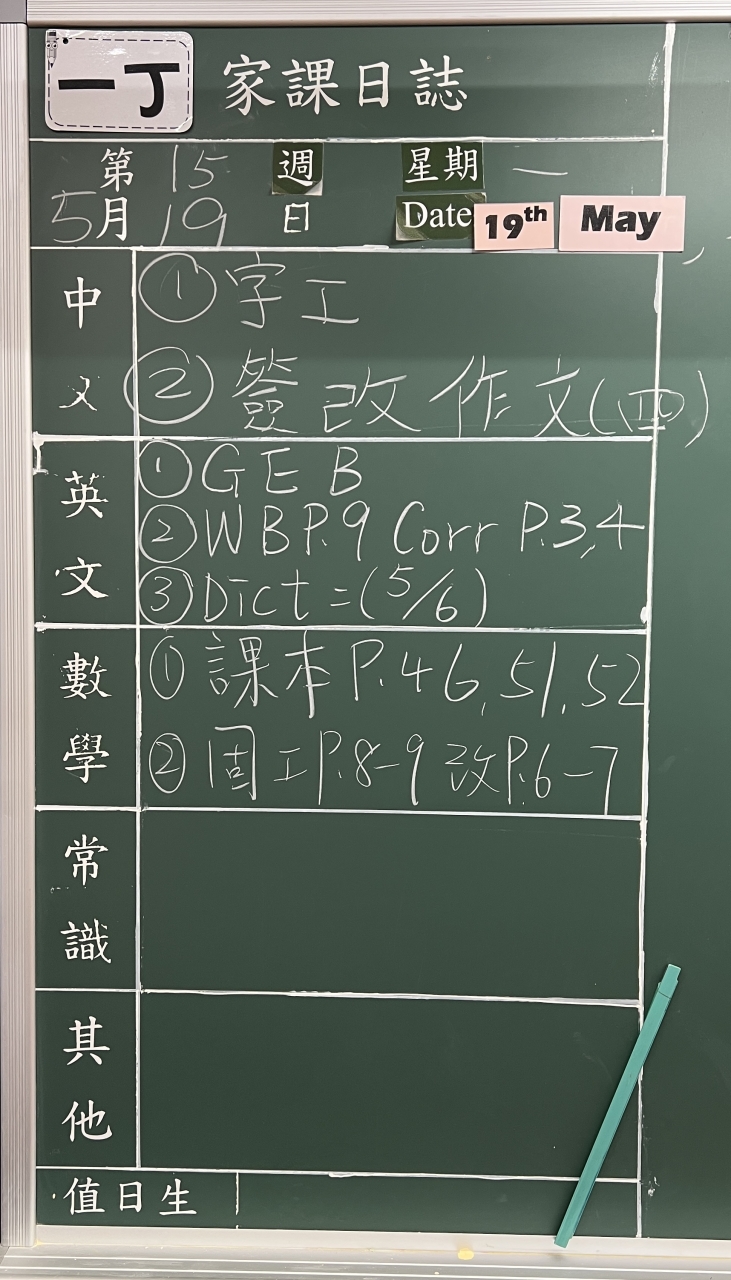 一丁 家課日誌
第 15 週 星期 一
5月 19 日 Date 19th May
中文 ① 字工
② 簽改作文(四)
英文 ① GEB
② WB P.9 Corr P.3,4
③ Dict = (5/6)
數學 ① 課本 P.46,51,52
② 固工 P.8-9 改 P.6-7
常識
其他
值日生